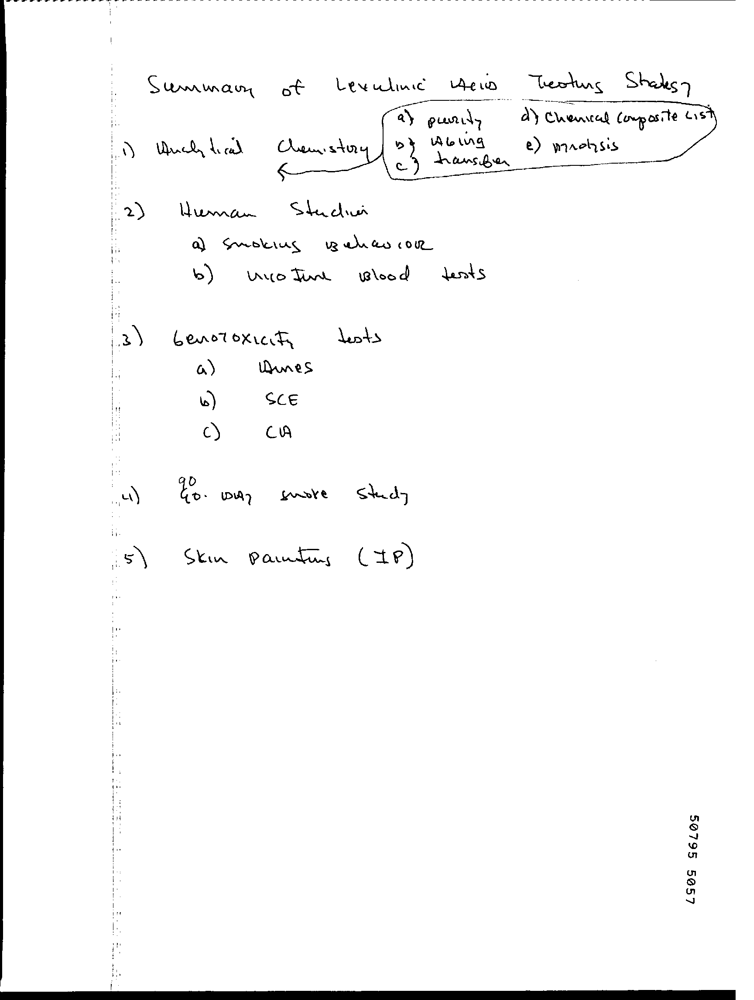 Summary of Levulinic Acid Testing Strategy
1) Analytical Chemistory
a) purity d) Chemical Composite List
b) Aging e)
c) transfer
2) Human Studies
a) smoking Behaviour
b) nicotine Blood tests
3) Genotoxicity tests
a) Ames
b) SCE
c) CA
4) 90 Day smoke study
5) Skin Painting (IP)
50795 5057